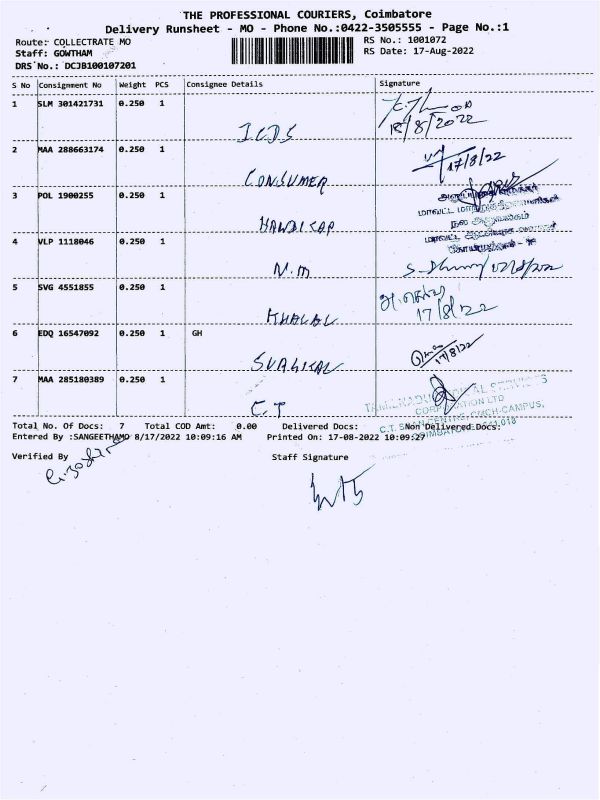 THE PROFESSIONAL COURIERS, Coimbatore
Delivery Runsheet - MO - Phone No.:0422-3505555 - Page No.:1
Route: COLLECTRATE MO RS No.: 1001072
Staff: GOWTHAM RS Date: 17-Aug-2022
DRS No.: DCJB100107201
S No Consignment No Weight PCS Consignee Details Signature
1 SLM 301421731 0.250 1
18/8/2022
ICDS
2 MAA 288663174 0.250 1
17/8/22
CONSUMER
3 POL 1900255 0.250 1
HANDICAP
மாவட்ட
நல அலுவலகம்
4 VLP 1118046 0.250 1
N.M
5 SVG 4551855 0.250 1
17/8/22
KHALAL
6 EDQ 16547092 0.250 1 GH
17/8/22
SURGICAL
7 MAA 285180389 0.250 1
TAMILNADU MEDICAL SERVICES
CORPORATION LTD
C.T
C.T. SCAN CENTRE, CMCH-CAMPUS,
COIMBATORE-641 018
Total No. Of Docs: 7 Total COD Amt: 0.00 Delivered Docs: Non Delivered Docs:
Entered By :SANGEETHAMO 8/17/2022 10:09:16 AM Printed On: 17-08-2022 10:09:27
Verified By Staff Signature